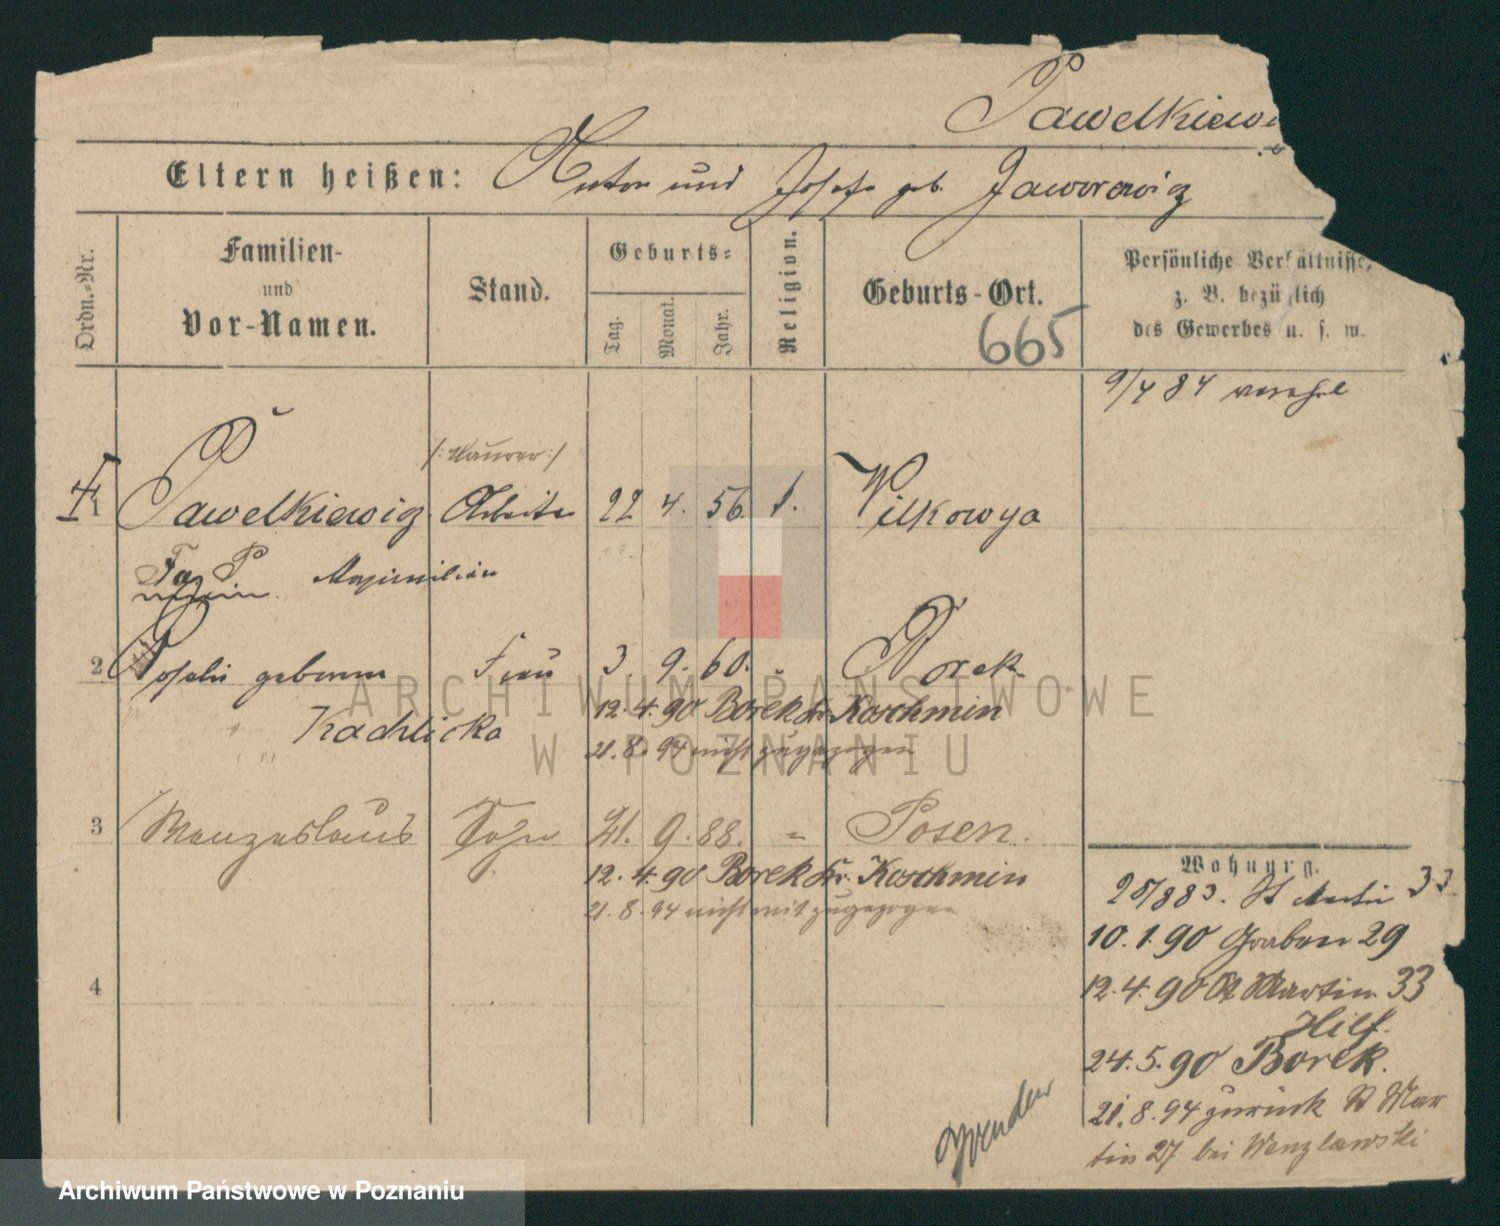 Pawelkiewi
Eltern heißen: Anton und Josefa geb. Jaworowicz
Ordn.-Nr.
Familien-
und
Vor-Namen.
Stand.
Geburts-
Tag.
Monat.
Jahr.
Religion.
Geburts-Ort.
665
Persönliche Verhältnisse,
z. B. bezüglich
des Gewerbes u. s. w.
9/4 84
/: Maurer :/
1 Pawelkiewicz Arbeiter 22 4. 56. k. Wilkowya
Maximilian
2 geborene Frau 3 9. 60. " Borek
Kachlicka
12. 4. 90 Borek Kr. Koschmin
21. 8. 94 nicht zugezogen
3 Wenzeslaus Sohn 21. 9. 88. " Posen.
12. 4. 90 Borek Kr. Koschmin
21. 8. 94 nicht mit zugezogen
4
Wohnung.
25/8 83. St Martin 33
10. 1. 90 Graben 29
12. 4. 90 St Martin 33
Hilf.
24. 5. 90 Borek.
21. 8. 94 zurück St Mar
tin 27 bei Wenzlawski
Wenden
ARCHIWUM PAŃSTWOWE
W POZNANIU
Archiwum Państwowe w Poznaniu